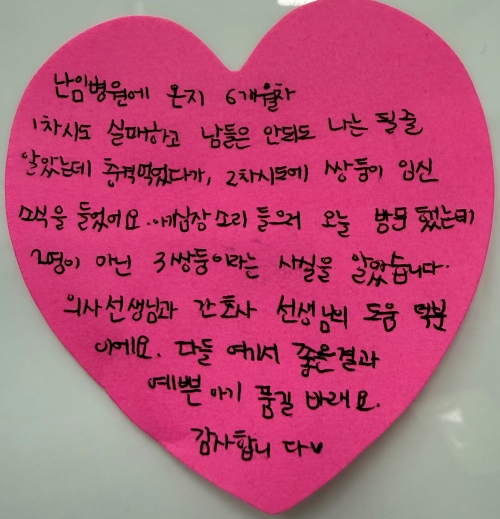 난임병원에 온지 6개월차
1차시도 실패하고 남들은 안되도 나는 될줄
알았는데 충격먹었다가, 2차시도에 쌍둥이 임신
소식을 들었어요. 애심장소리 들으러 오늘 방문했는데
2명이 아닌 3쌍둥이라는 사실을 알았습니다.
의사선생님과 간호사 선생님의 도움 덕분
이에요. 다들 여기서 좋은결과
예쁜 아기 품길 바래요.
감사합니다♥